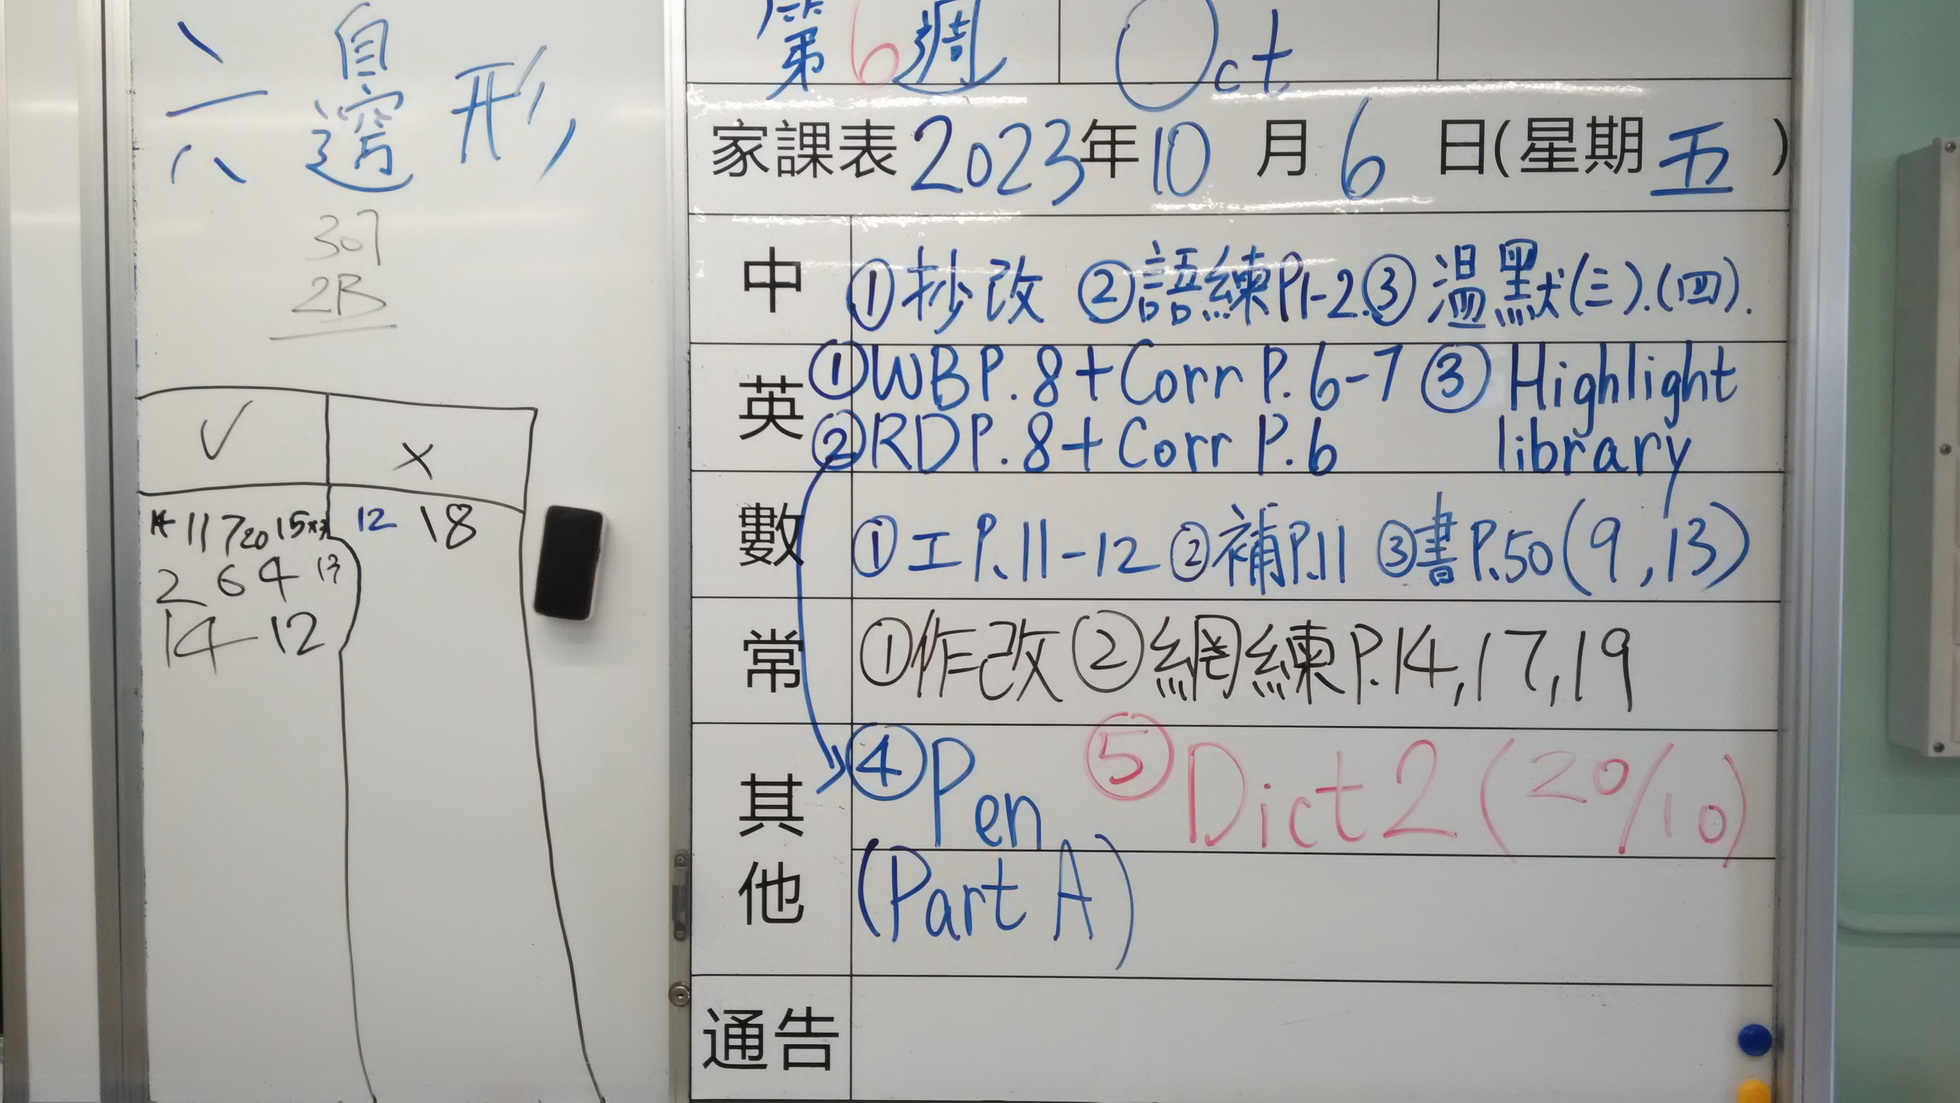 六邊形
307
2B
✓ ×
11 7 20 15 12 18
2 6 4 13
14 12
第6週 Oct
家課表2023年10月6日(星期五)
中 ①抄改 ②語練P1-2 ③溫默(三).(四).
英 ①WB P.8+Corr P.6-7 ③Highlight
②RD P.8+Corr P.6 library
數 ①工P.11-12 ②補P.11 ③書P.50(9,13)
常 ①作改 ②網練P.14,17,19
其他 ④Pen ⑤Dict 2 (20/10)
(Part A)
通告